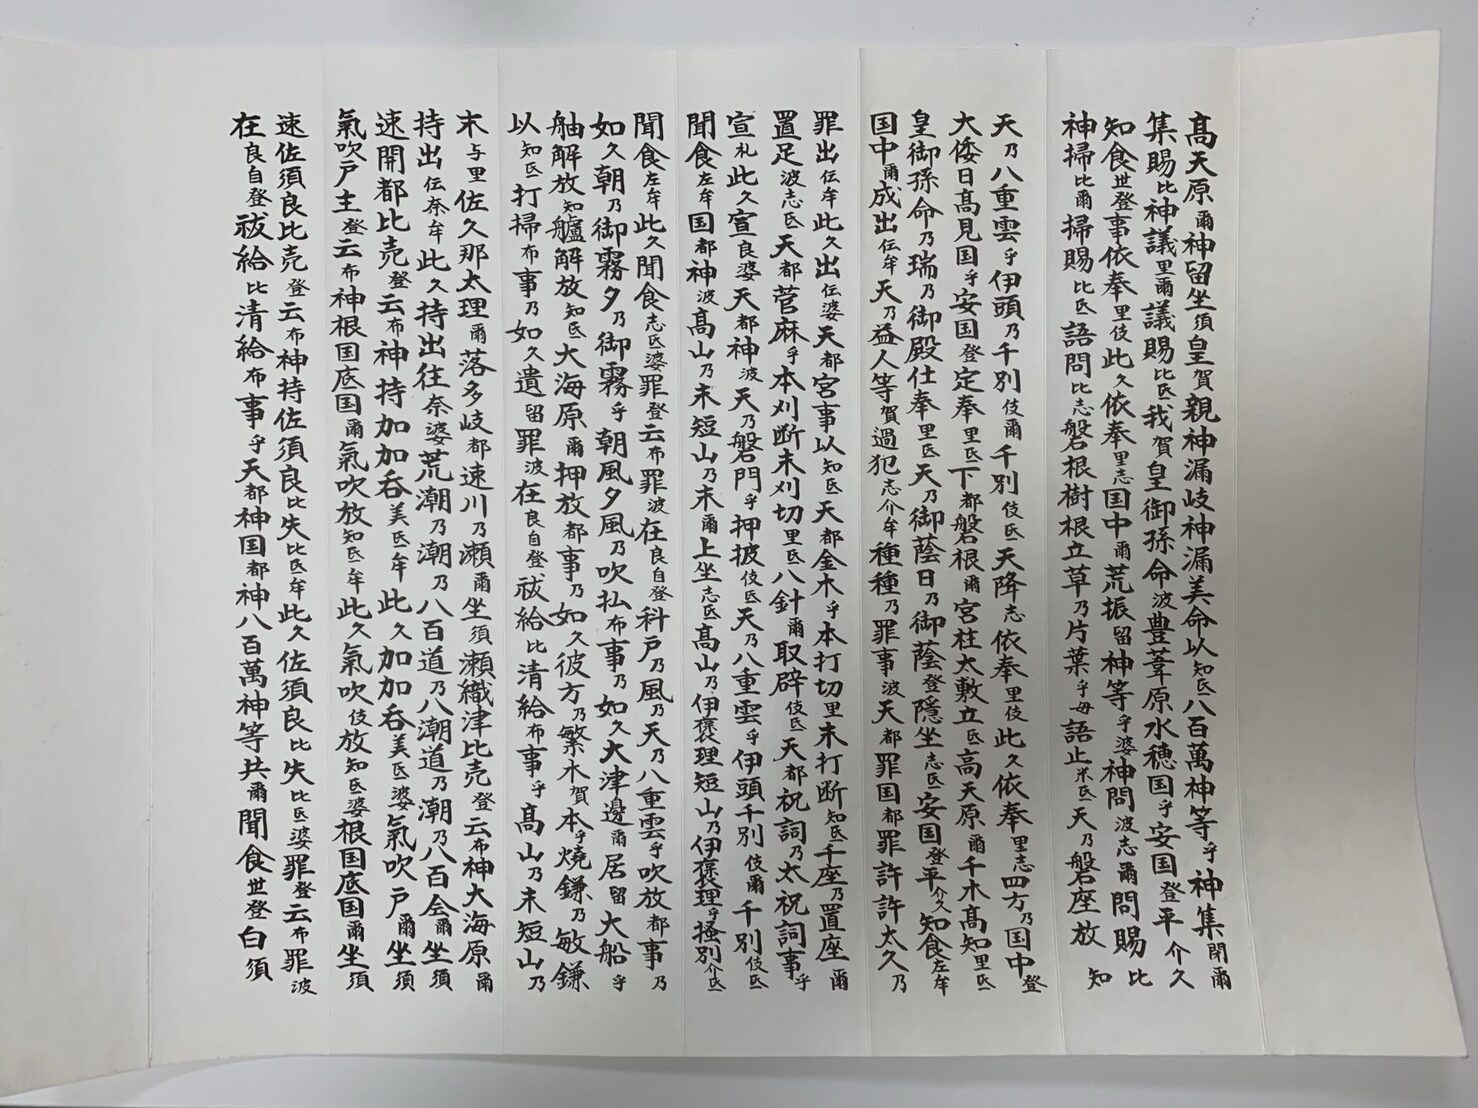 高天原爾神留坐須皇賀親神漏岐神漏美命以知氐八百萬神等乎神集閉爾
集賜比神議里爾議賜比氐我賀皇御孫命波豊葦原水穂国乎安国登平介久
知食世登事依奉里伎此久依奉里志国中爾荒振留神等乎婆神問波志爾問賜比
神掃比爾掃賜比氐語問比志磐根樹根立草乃片葉乎毋語止米氐天乃磐座放知
天乃八重雲乎伊頭乃千別伎爾千別伎氐天降志依奉里伎此久依奉里志四方乃国中登
大倭日高見国乎安国登定奉里氐下都磐根爾宮柱太敷立氐高天原爾千木高知里氐
皇御孫命乃瑞乃御殿仕奉里氐天乃御蔭日乃御蔭登隠坐志氐安国登平介久知食左牟
国中爾成出伝牟天乃益人等賀過犯志介牟種種乃罪事波天都罪国都罪許許太久乃
罪出伝牟此久出伝婆天都宮事以知氐天都金木乎本打切里末打断知氐千座乃置座爾
置足波志氐天都菅麻乎本刈断末刈切里氐八針爾取辟伎氐天都祝詞乃太祝詞事乎
宣礼此久宣良婆天都神波天乃磐門乎押披伎氐天乃八重雲乎伊頭千別伎爾千別伎氐
聞食左牟国都神波高山乃末短山乃末爾上坐志氐高山乃伊褒理短山乃伊褒理乎掻別介氐
聞食左牟此久聞食志氐婆罪登云布罪波在良自登科戸乃風乃天乃八重雲乎吹放都事乃
如久朝乃御霧夕乃御霧乎朝風夕風乃吹払布事乃如久大津邊爾居留大船乎
舳解放知艫解放知氐大海原爾押放都事乃如久彼方乃繁木賀本乎焼鎌乃敏鎌
以知氐打掃布事乃如久遺留罪波在良自登祓給比清給布事乎高山乃末短山乃
末与里佐久那太理爾落多岐都速川乃瀬爾坐須瀬織津比売登云布神大海原爾
持出伝奈牟此久持出往奈婆荒潮乃潮乃八百道乃八潮道乃潮乃八百会爾坐須
速開都比売登云布神持加加呑美氐牟此久加加呑美氐婆氣吹戸爾坐須
氣吹戸主登云布神根国底国爾氣吹放知氐牟此久氣吹伎放知氐婆根国底国爾坐須
速佐須良比売登云布神持佐須良比失比氐牟此久佐須良比失比氐婆罪登云布罪波
在良自登祓給比清給布事乎天都神国都神八百萬神等共爾聞食世登白須